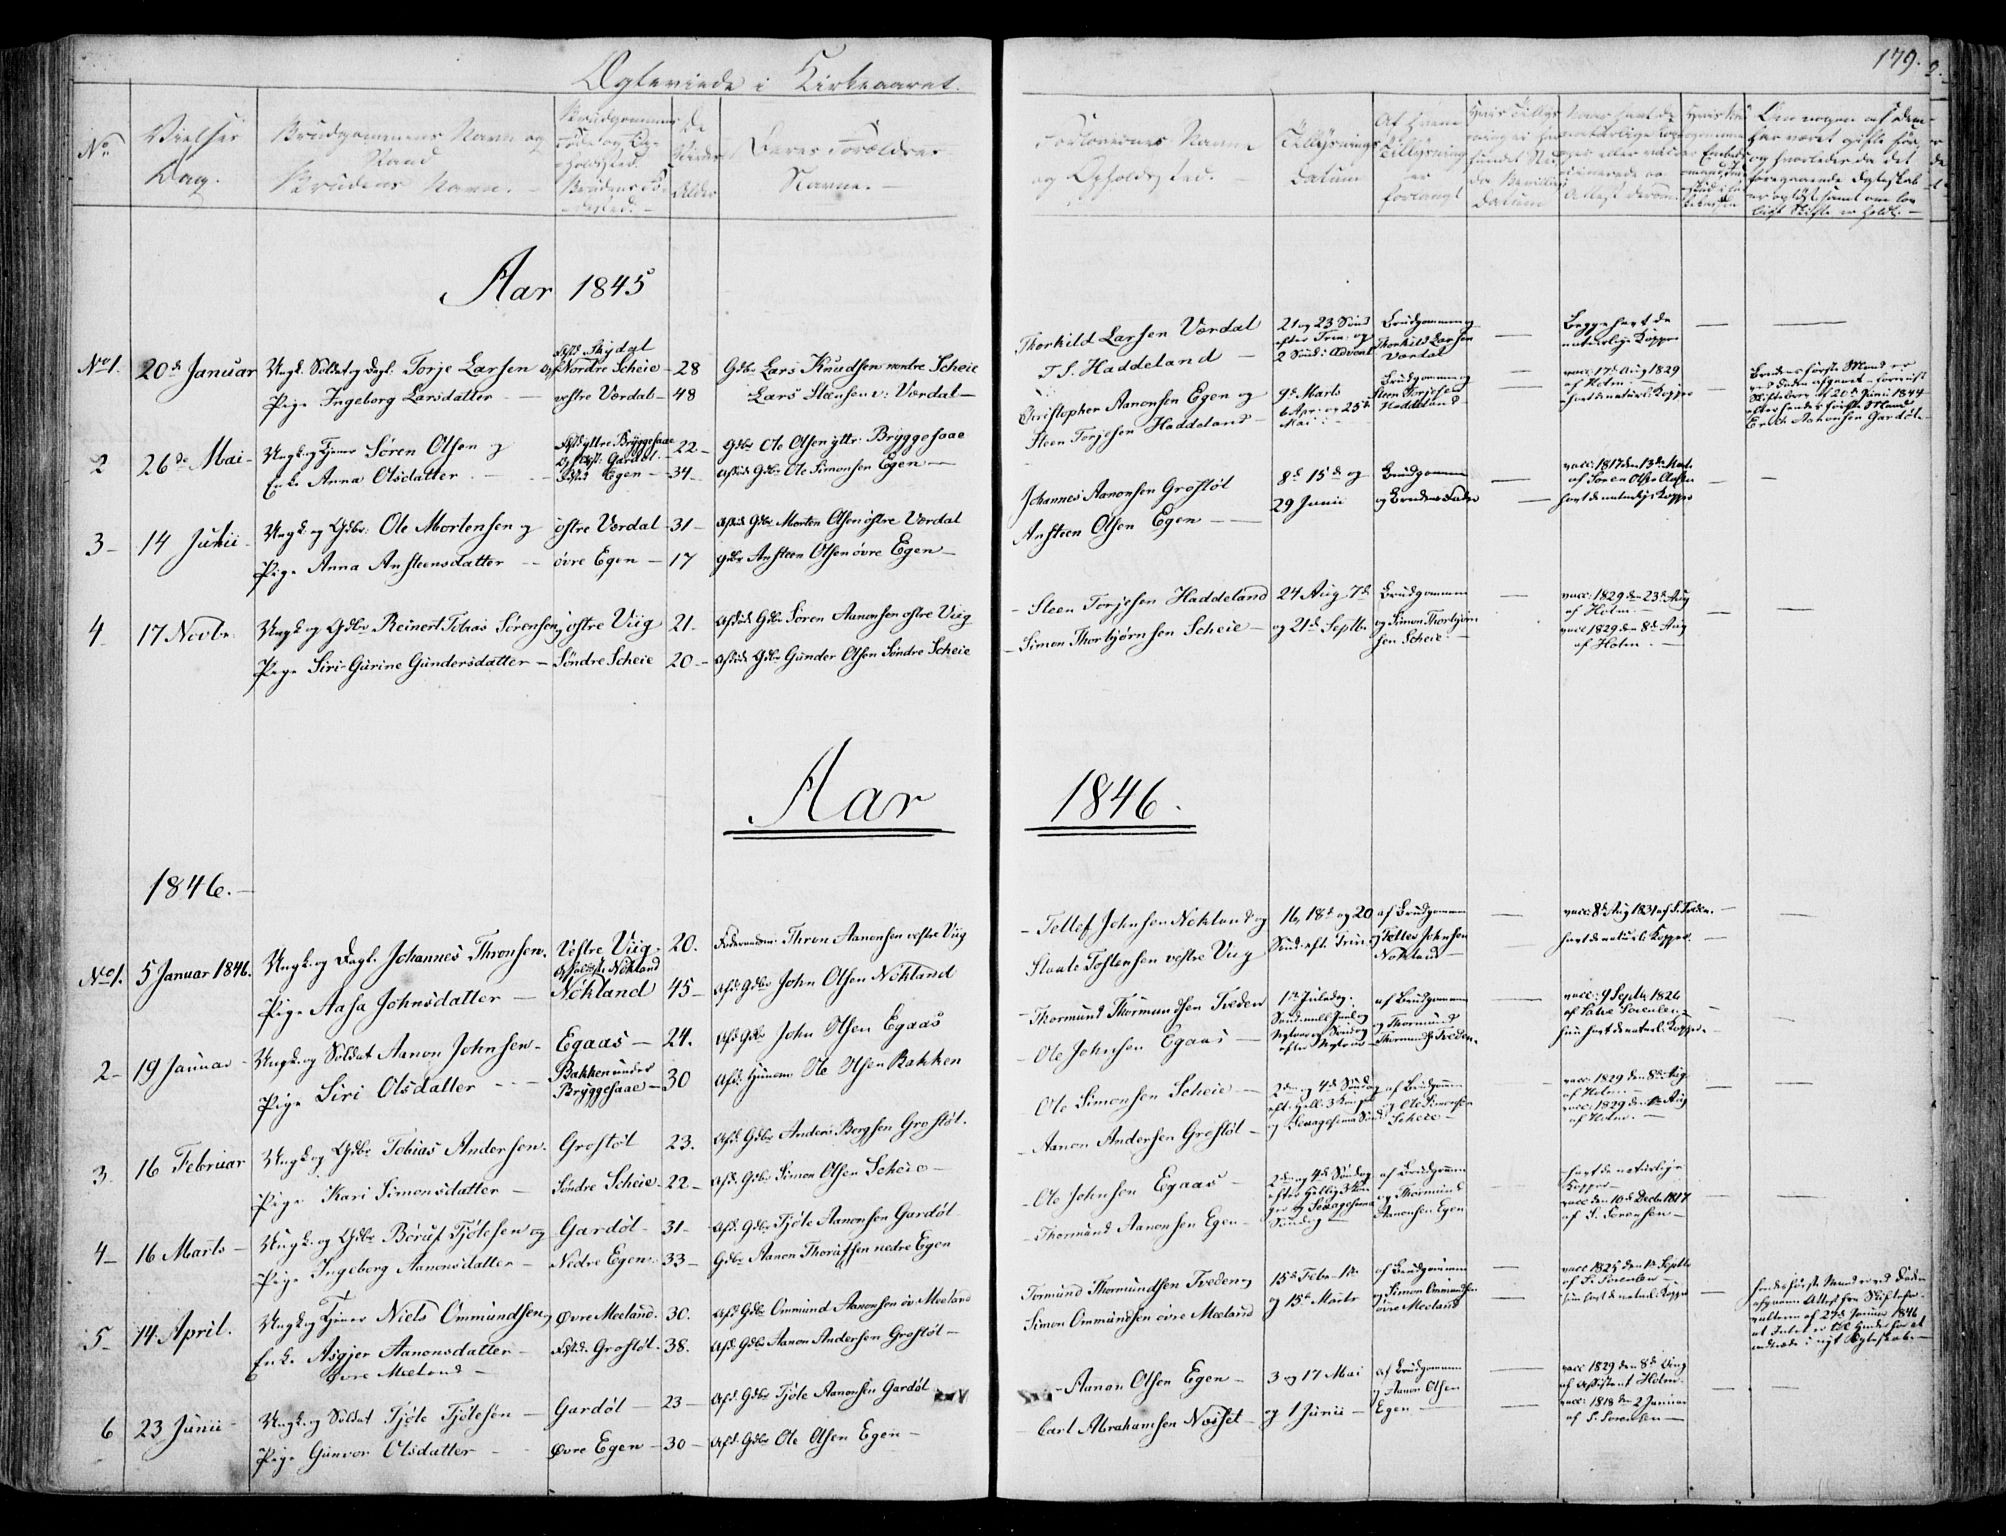 Ægteviede i Kirkeaaret.
179.
No
Vielses
Dag.
Brudgommens Navn og
Stand
Brudens Navn.
Deres Forældres
Navne.
Forlovernes Navne
og Opholdssted.
Tillysnings
Datum
Aar 1845
No 1. 20de Januar Ungk. Soldat og Dagl. Torje Larsen Nordre Scheie 28 Gdbr Lars Knudsen nordre Scheie
Pige Ingeborg Larsdatter vestre Værdal 48 Lars Steensen v: Værdal
Thorkild Larsen Værdal
T. S. Haddeland
21 og 23 Sønd
efter Trin: og
2 Sønd: i Advent
Brudgommen og
Thorkild Larsen
Værdal
Begge havt de
naturlige Kopper
2 26de Mai Ungk. og Tjener Søren Olsen og 22 Gdbr Ole Olsen yttr. Bryggesaae
Enke Anna Olsdatter Egen 34 Afdøde Gdbr Ole Simonsen Egen
Christopher Aanonsen Egen og
Steen Torjesen Haddeland
9de Marts
6 Apr: og 25de
Mai
Brudgommen og
Steen Torjesen
Haddeland
vacc. 17de Aug 1829
af Holm.
havt de naturl: Kopper
Brudens første Mand er
ved Døden afgaaet
af 20de Junii 1844
efter hendes første Mand
Erich Aanonsen Gardøl
3 14 Junii Ungk. og Gdbr: Ole Mortensen og østre Værdal 31 Afdøde Gdbr Morten Olsen østre Værdal
Pige Anna Ansteensdatter øvre Egen 17 Gdbr Ansteen Olsen øvre Egen
Johannes Aanonsen Grostøl
Ansteen Olsen Egen
8de 15de og
29 Junii
Brudgommen
og Brudens Fader
vacc: 1817 den 13de
af Søren Olsen
havt de naturlige Kopper
4 17 Novbr. Ungk. og Gdbr Reinert Tobias Sørensen østre Viig 21. Afdøde Gdbr Søren Aanonsen østre Viig
Pige Siri Gurine Gundersdatter Søndre Scheie 20 Afdøde Gdbr Gunder Olsen Søndre Scheie
Steen Torjesen Haddeland
Simon Thorbjørnsen Scheie
24 Aug. 7de
og 21de Septbr
Brudgommen
og Simon Thorbjørn
sen Scheie
vacc: 1829 den 23de Aug
af Holm.
vacc 1829 den 8de Aug
af Holm.
Aar 1846.
1846.
No 1. 5 Januar 1846. Ungk. og Dagl. Johannes Thronsen. Vestre Viig. 20. Thron Aanonsen vestre Viig
Pige Aasa Johnsdatter Nökland 45 Afd: Gdbr John Olsen Nökland
Tellef Johnsen Nökland og
Staale Tostensen vestre Viig
16, 18de og 20
Sønd: efter Trin:
af Brudgommen
og Tellef Johnsen
Nökland
vacc: 8de Aug 1831 af S. Tveden.
havt de naturl: Kopper.
2 19 Januar Ungk. og Soldat Aanon Johnsen Egaas 24. Afd. Gdbr John Olsen Egaas
Pige Siri Olsdatter Bakken under 30 Afd: Huusm Ole Olsen Bakken
Bryggesaae
Thormund Thormundsen Tveden
Ole Johnsen Egaas
1ste Juledag.
Sønd: mell. Juul og
Nytaar og Søndag
efter Nytaar
af Brudgommen
og Thormund
Thormunds: Tveden.
vacc: 9 Septbr 1826
hun havt de naturl: Kopper.
3 16 Februar Ungk. og Gdbr Tobias Andersen. Grostøl 23. Afd. Gdbr Anders Bergsen Grostøl.
Pige Kari Simonsdatter Søndre Scheie. 22 Afd. Gdbr Simon Olsen Scheie
Ole Simonsen Scheie
Aanon Andersen Grostøl
2den og 4de Søndag
af Brudgommen
og Ole Simonsen
Scheie
vacc: 1829 den 8de Aug
af Holm.
vacc: 1829 den Aug
af Holm.
4 16 Marts Ungk. og Gdbr Børuf Tjøtesen og Gardøl 31 Afd. Gdbr Tjøte Aanonsen Gardøl
Pige Ingeborg Aanonsdatter Nedre Egen. 33 Gdbr Aanon Thorufsen nedre Egen
Ole Johnsen Egaas
Thormund Aanonsen Egen
2den og 4de Søndag
Søndag
af Brudgommen
og Thormund
Aanonsen Egen
havt de naturlige
Kopper
vacc den 10de Decbr 1817
af S. Sørensen
5 14 April. Ungk. og Tjener Niels Ommundsen, Øvre Meeland. 30. Afd. Gdbr Ommund Aanonsen öv. Meeland
Enke Asgjer Aanonsdatter Grostøl. 38. Afd. Gdbr Aanon Andersen Grostøl
øvre Meeland
Tormund Thormundsen Tveden
Simon Ommundsen øvre Meeland
15de Febr 1ste
og 15de Marts
af Brudgommen
og Simon Ommundsen
øvre Meeland
vacc 1825 den Septbr
af S. Sørensen
hun havt de naturl. Kopper
hendes første Mand er ved Døden
afgaaen Attest fra Skiftefor-
valteren af 27de Januar 1846
at Intet er til Hinder for at
indtræde i nyt Ægteskab.
6 23 Junii Ungk. og Soldat Tjöte Tjötesen Gardøl 23 Afd. Gdbr Tjöte Aanonsen Gardøl
Pige Gunvor Olsdatter Øvre Egen 30 Afd. Gdbr Ole Olsen Egen
Aanon Olsen Egen
Carl Abrahamsen Næsset
3 og 17 Mai
og 1 Junii
af Brudgommen
og Aanon Olsen
Egen
vacc 1829 den 8de Aug
af Assistent Holm.
vacc: 1818 den 2 Januar
af S. Sørensen